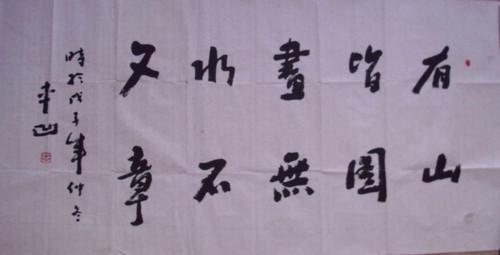 有山
皆圖
畫無
水不
文章
時於戊子年仲冬